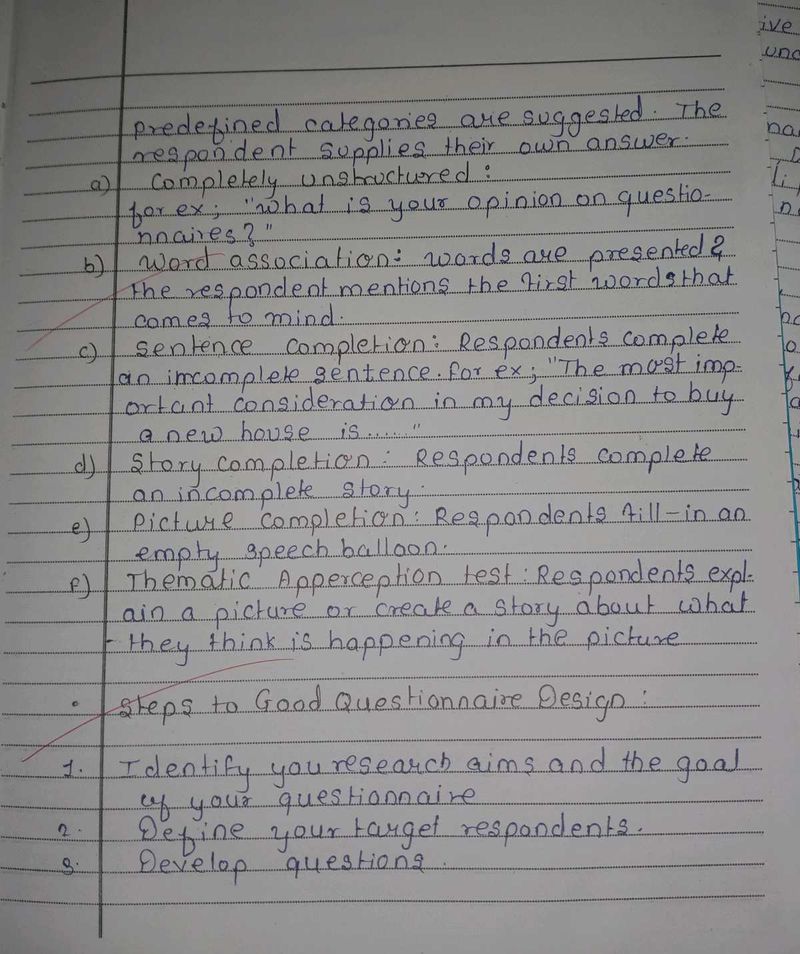 predefined categories are suggested. The
respondent supplies their own answer.
a) Completely unstructured :
for ex; "what is your opinion on questio-
nnaires?"
b) Word association: words are presented &
the respondent mentions the first words that
comes to mind.
c) Sentence completion: Respondents complete
an imcomplete sentence. for ex; "The most imp-
ortant consideration in my decision to buy
a new house is ..... "
d) Story completion: Respondents complete
an incomplete story.
e) Picture completion: Respondents fill-in an
empty speech balloon.
f) Thematic Apperception test: Respondents expl-
ain a picture or create a story about what
they think is happening in the picture
• Steps to Good Questionnaire Design :
1. Identify you research aims and the goal
of your questionnaire
2. Define your target respondents.
3. Develop questions.
ive